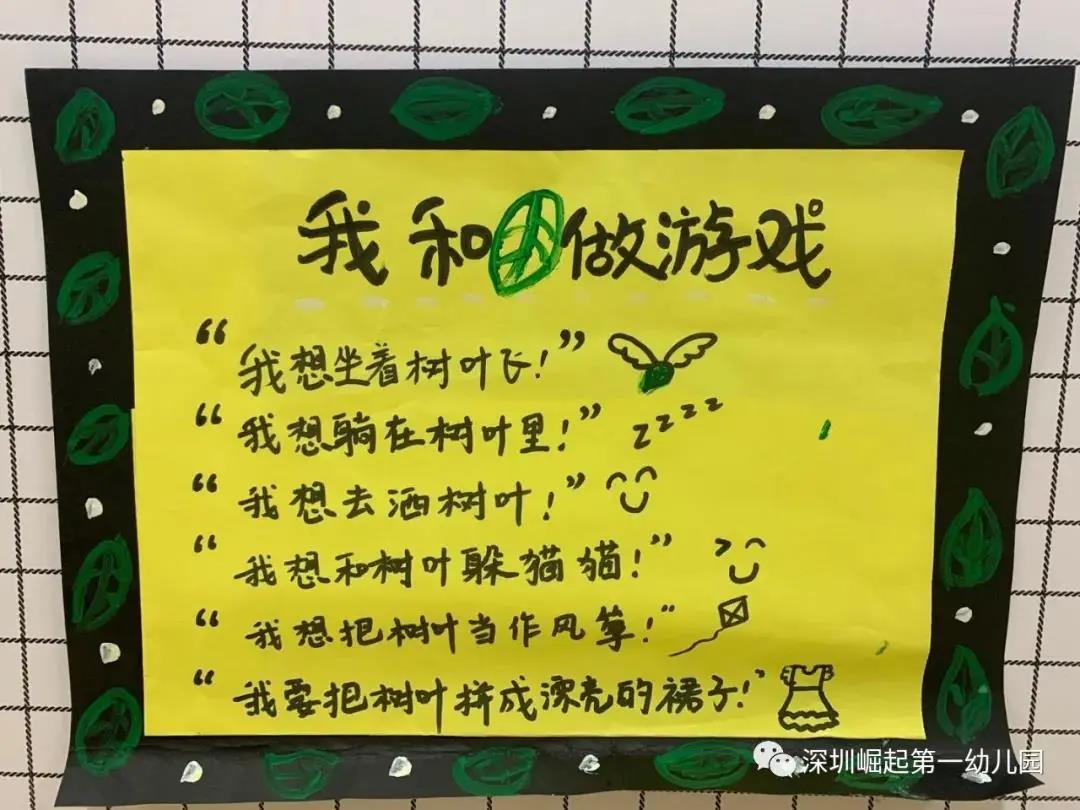 我和做游戏
“我想坐着树叶飞！”
“我想躺在树叶里！” zzzz
“我想去洒树叶！”
“我想和树叶躲猫猫！”
“我想把树叶当作风筝！”
“我要把树叶拼成漂亮的裙子！”
深圳崛起第一幼儿园